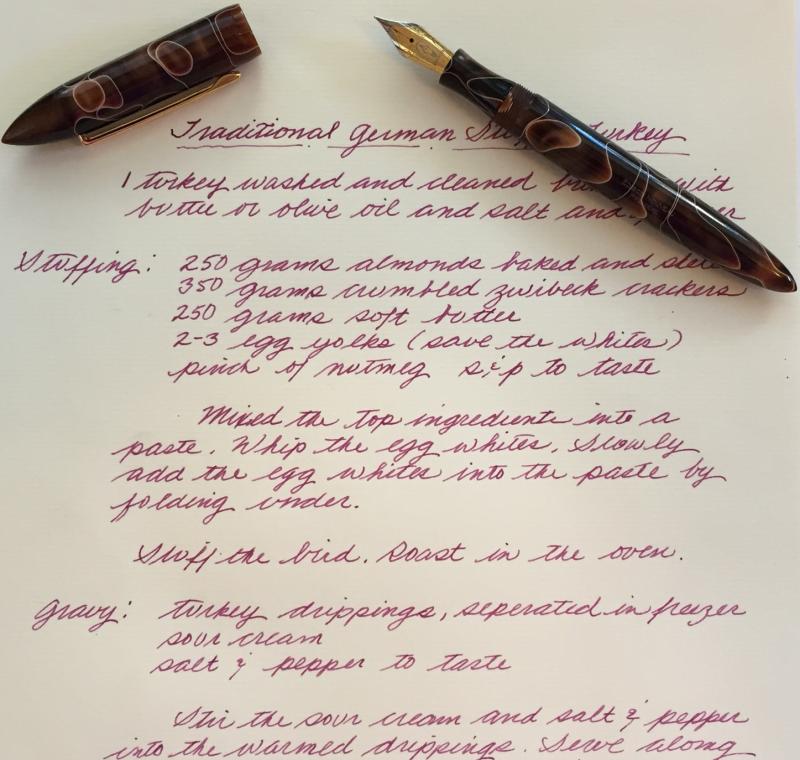 Traditional German Turkey
1 turkey washed and cleaned with
butter or olive oil and salt and
Stuffing: 250 grams almonds baked and
350 grams crumbled zwibeck crackers
250 grams soft butter
2-3 egg yolks (save the whites)
pinch of nutmeg s & p to taste
Mixed the top ingredients into a
paste. Whip the egg whites. Slowly
add the egg whites into the paste by
folding under.
Stuff the bird. Roast in the oven.
Gravy: turkey drippings, seperated in freezer
sour cream
salt & pepper to taste
Stir the sour cream and salt & pepper
into the warmed drippings. Serve along